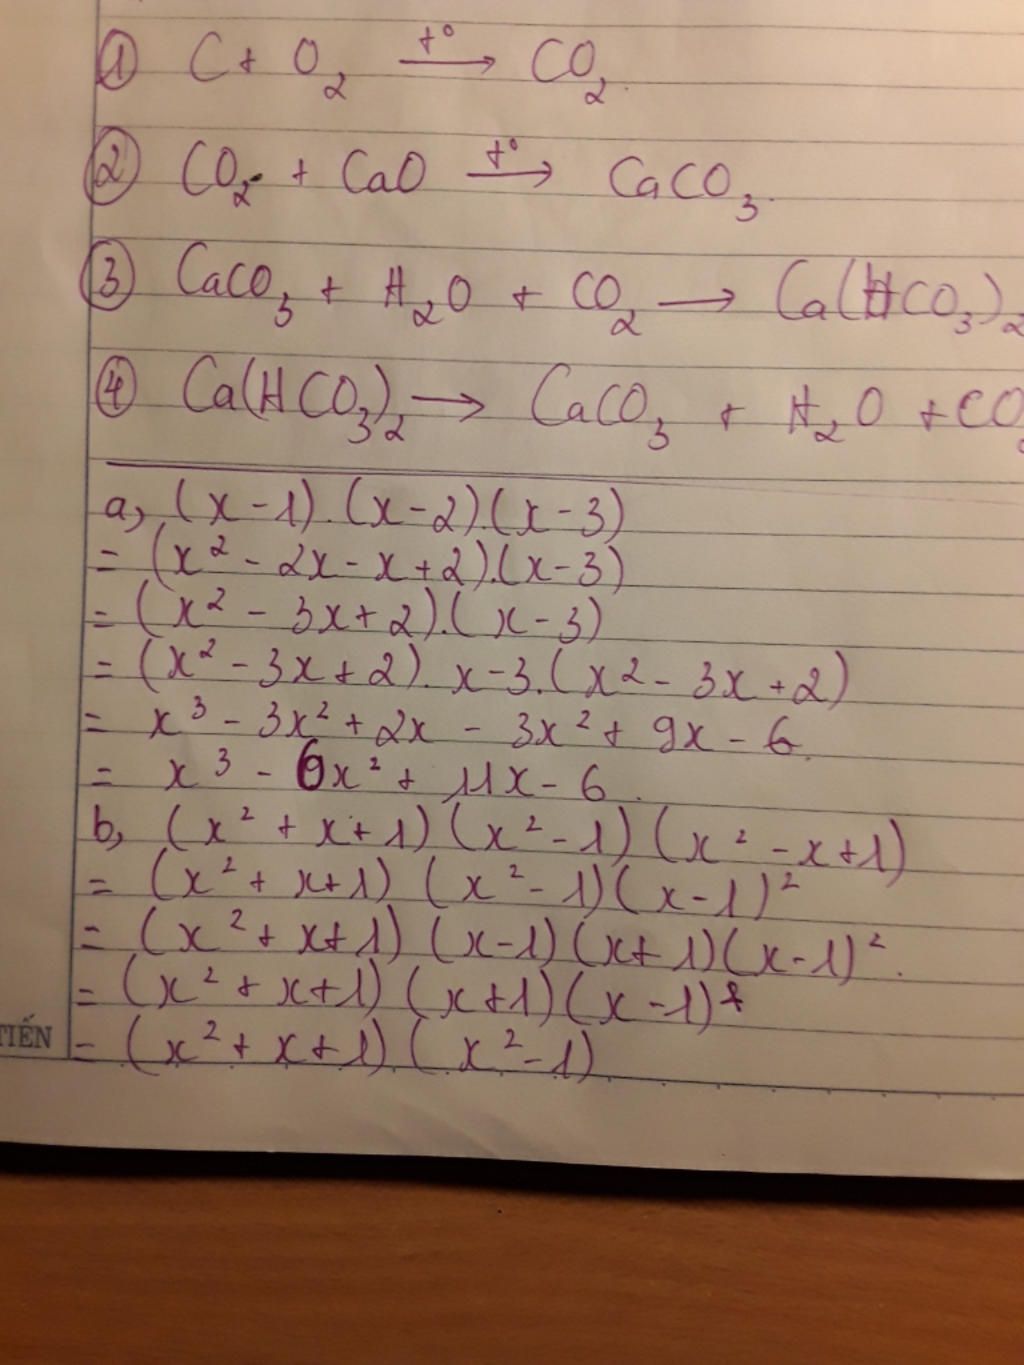 ① C + O₂ —t°→ CO₂.
② CO₂ + CaO —t°→ CaCO₃.
③ CaCO₃ + H₂O + CO₂ → Ca(HCO₃)₂
④ Ca(HCO₃)₂ → CaCO₃ + H₂O + CO₂
a, (x - 1).(x - 2).(x - 3)
= (x² - 2x - x + 2).(x - 3)
= (x² - 3x + 2).(x - 3)
= (x² - 3x + 2).x - 3.(x² - 3x + 2)
= x³ - 3x² + 2x - 3x² + 9x - 6.
= x³ - 6x² + 11x - 6.
b, (x² + x + 1)(x² - 1)(x² - x + 1)
= (x² + x + 1)(x² - 1)(x - 1)²
= (x² + x + 1)(x - 1)(x + 1)(x - 1)².
= (x² + x + 1)(x + 1)(x - 1)
TIẾN
= (x² + x + 1)(x² - 1)